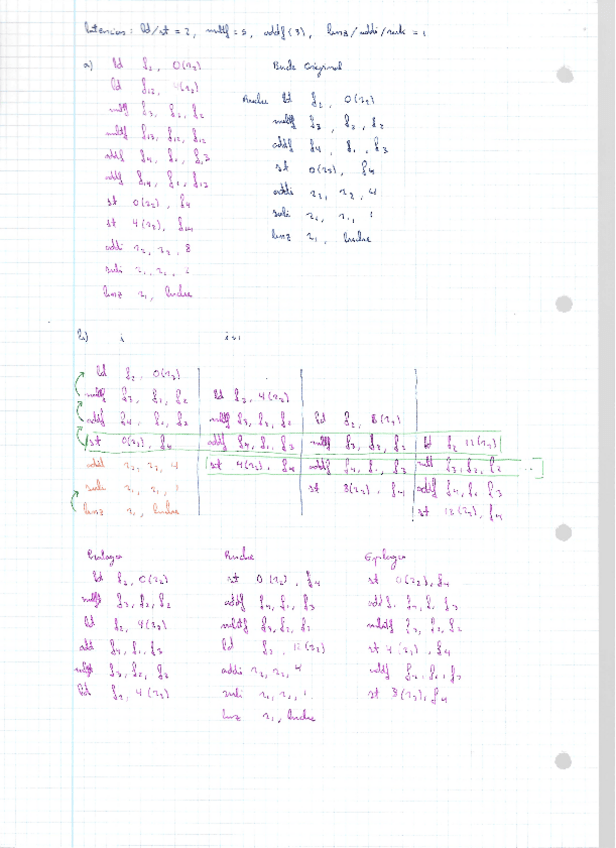 latencias: ld/st = 2, multf = 5, addf (3), bnez/addi/subi = 1
a)
ld f2, 0(r2)
ld f12, 4(r2)
multf f3, f2, f2
multf f13, f12, f12
addf f4, f1, f3
addf f14, f1, f13
st 0(r2), f4
st 4(r2), f14
addi r2, r2, 8
subi r1, r1, 2
bnez r1, bucle
Bucle Original
Bucle ld f2, 0(r2)
multf f3, f2, f2
addf f4, f1, f3
st 0(r2), f4
addi r2, r2, 4
subi r1, r1, 1
bnez r1, bucle
b) i i+1
ld f2, 0(r2)
multf f3, f2, f2 ld f2, 4(r2)
addf f4, f1, f3 multf f3, f2, f2 ld f2, 8(r2)
st 0(r2), f4 addf f4, f1, f3 multf f3, f2, f2 ld f2 12(r2)
addi r2, r2, 4 st 4(r2), f4 addf f4, f1, f3 multf f3, f2, f2 ...
subi r1, r1, 1 st 8(r2), f4 addf f4, f1, f3
bnez r1, bucle st 12(r2), f4
Prologo
ld f2, 0(r2)
multf f3, f2, f2
ld f2, 4(r2)
add f4, f1, f3
multf f3, f2, f2
ld f2, 4(r2)
Bucle
st 0(r2), f4
addf f4, f1, f3
multf f3, f2, f2
ld f2, 12(r2)
addi r2, r2, 4
subi r1, r1, 1
bnez r1, bucle
Epilogo
st 0(r2), f4
addf f4, f1, f3
multf f3, f2, f2
st 4(r2), f4
addf f4, f1, f3
st 8(r2), f4